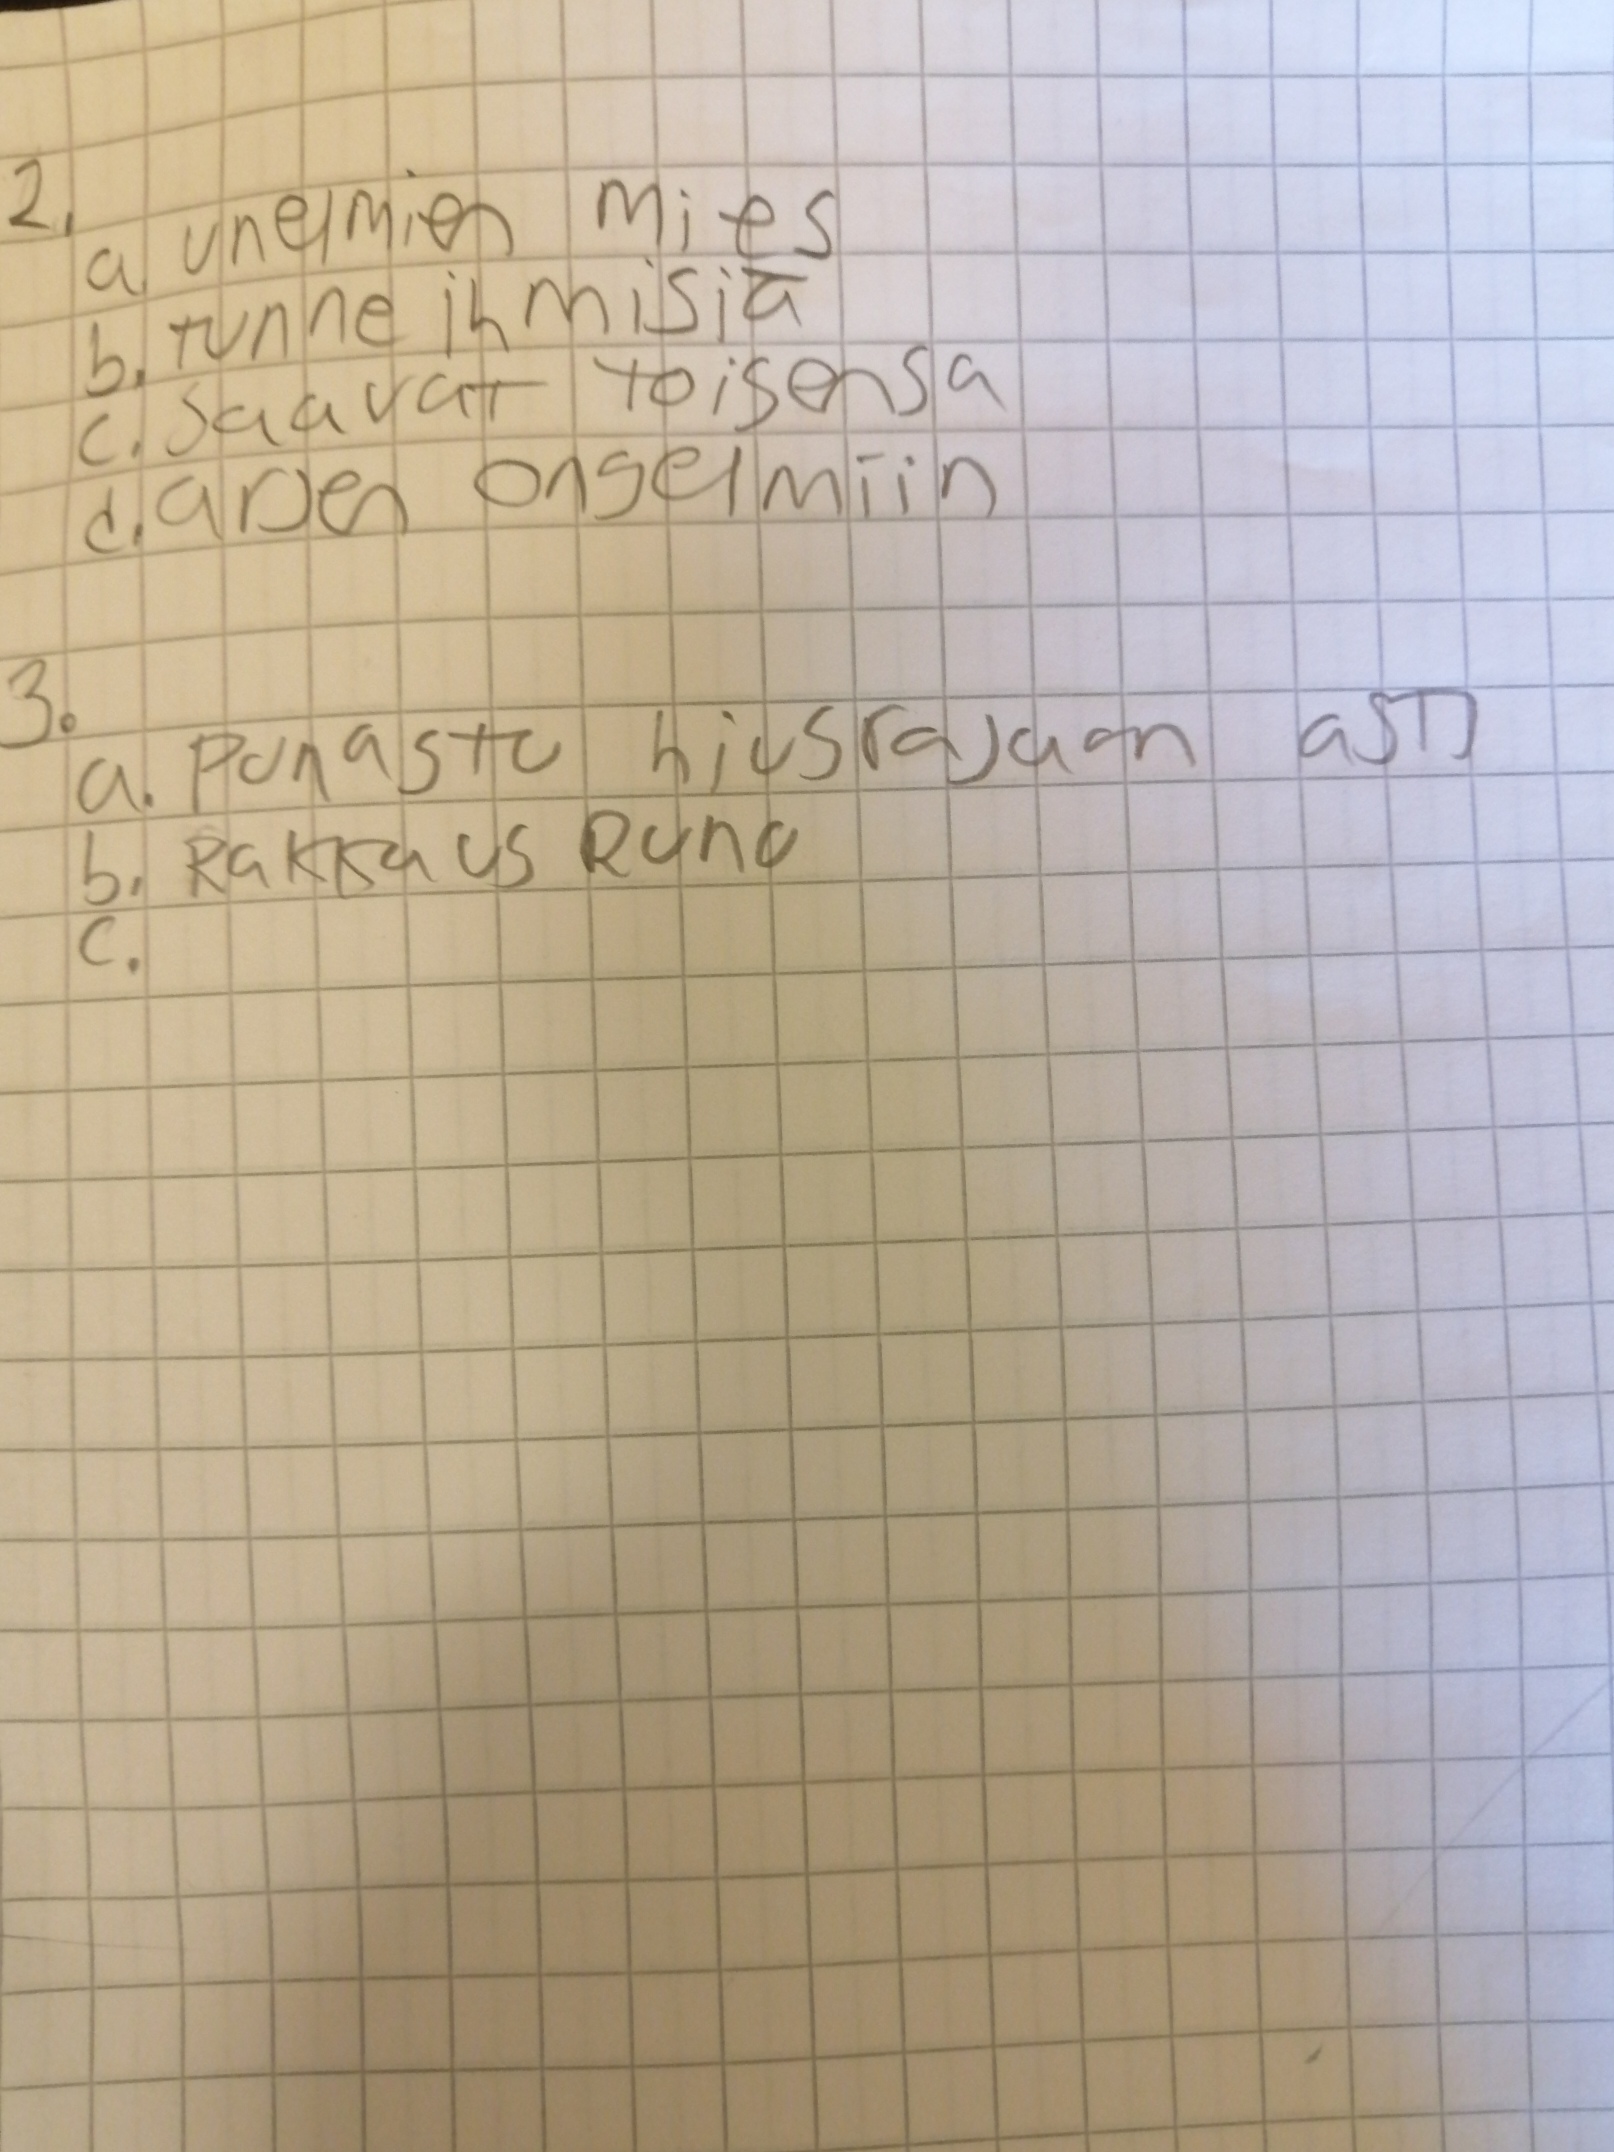 2.
a unelmien mies
b. tunne ihmisiä
c. saavat toisensa
d. arjen ongelmiin
3.
a. Punastu hiusrajaan asti
b. Rakkaus Runo
c.